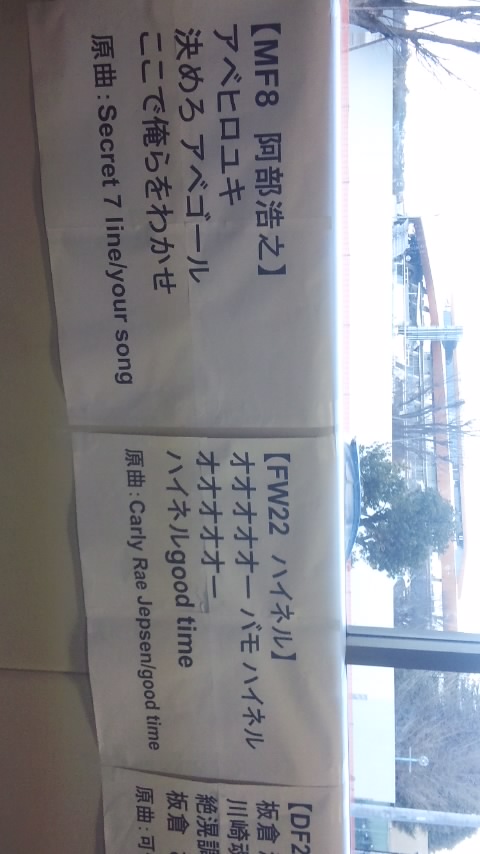 【MF8 阿部浩之】
アベヒロユキ
決めろ アベゴール
ここで俺らをわかせ
原曲:Secret 7 line/your song
【FW22 ハイネル】
オオオオオー バモ ハイネル
オオオオオー
ハイネルgood time
原曲:Carly Rae Jepsen/good time
【DF2
板倉
川崎魂
絶滉調
板倉
原曲:可